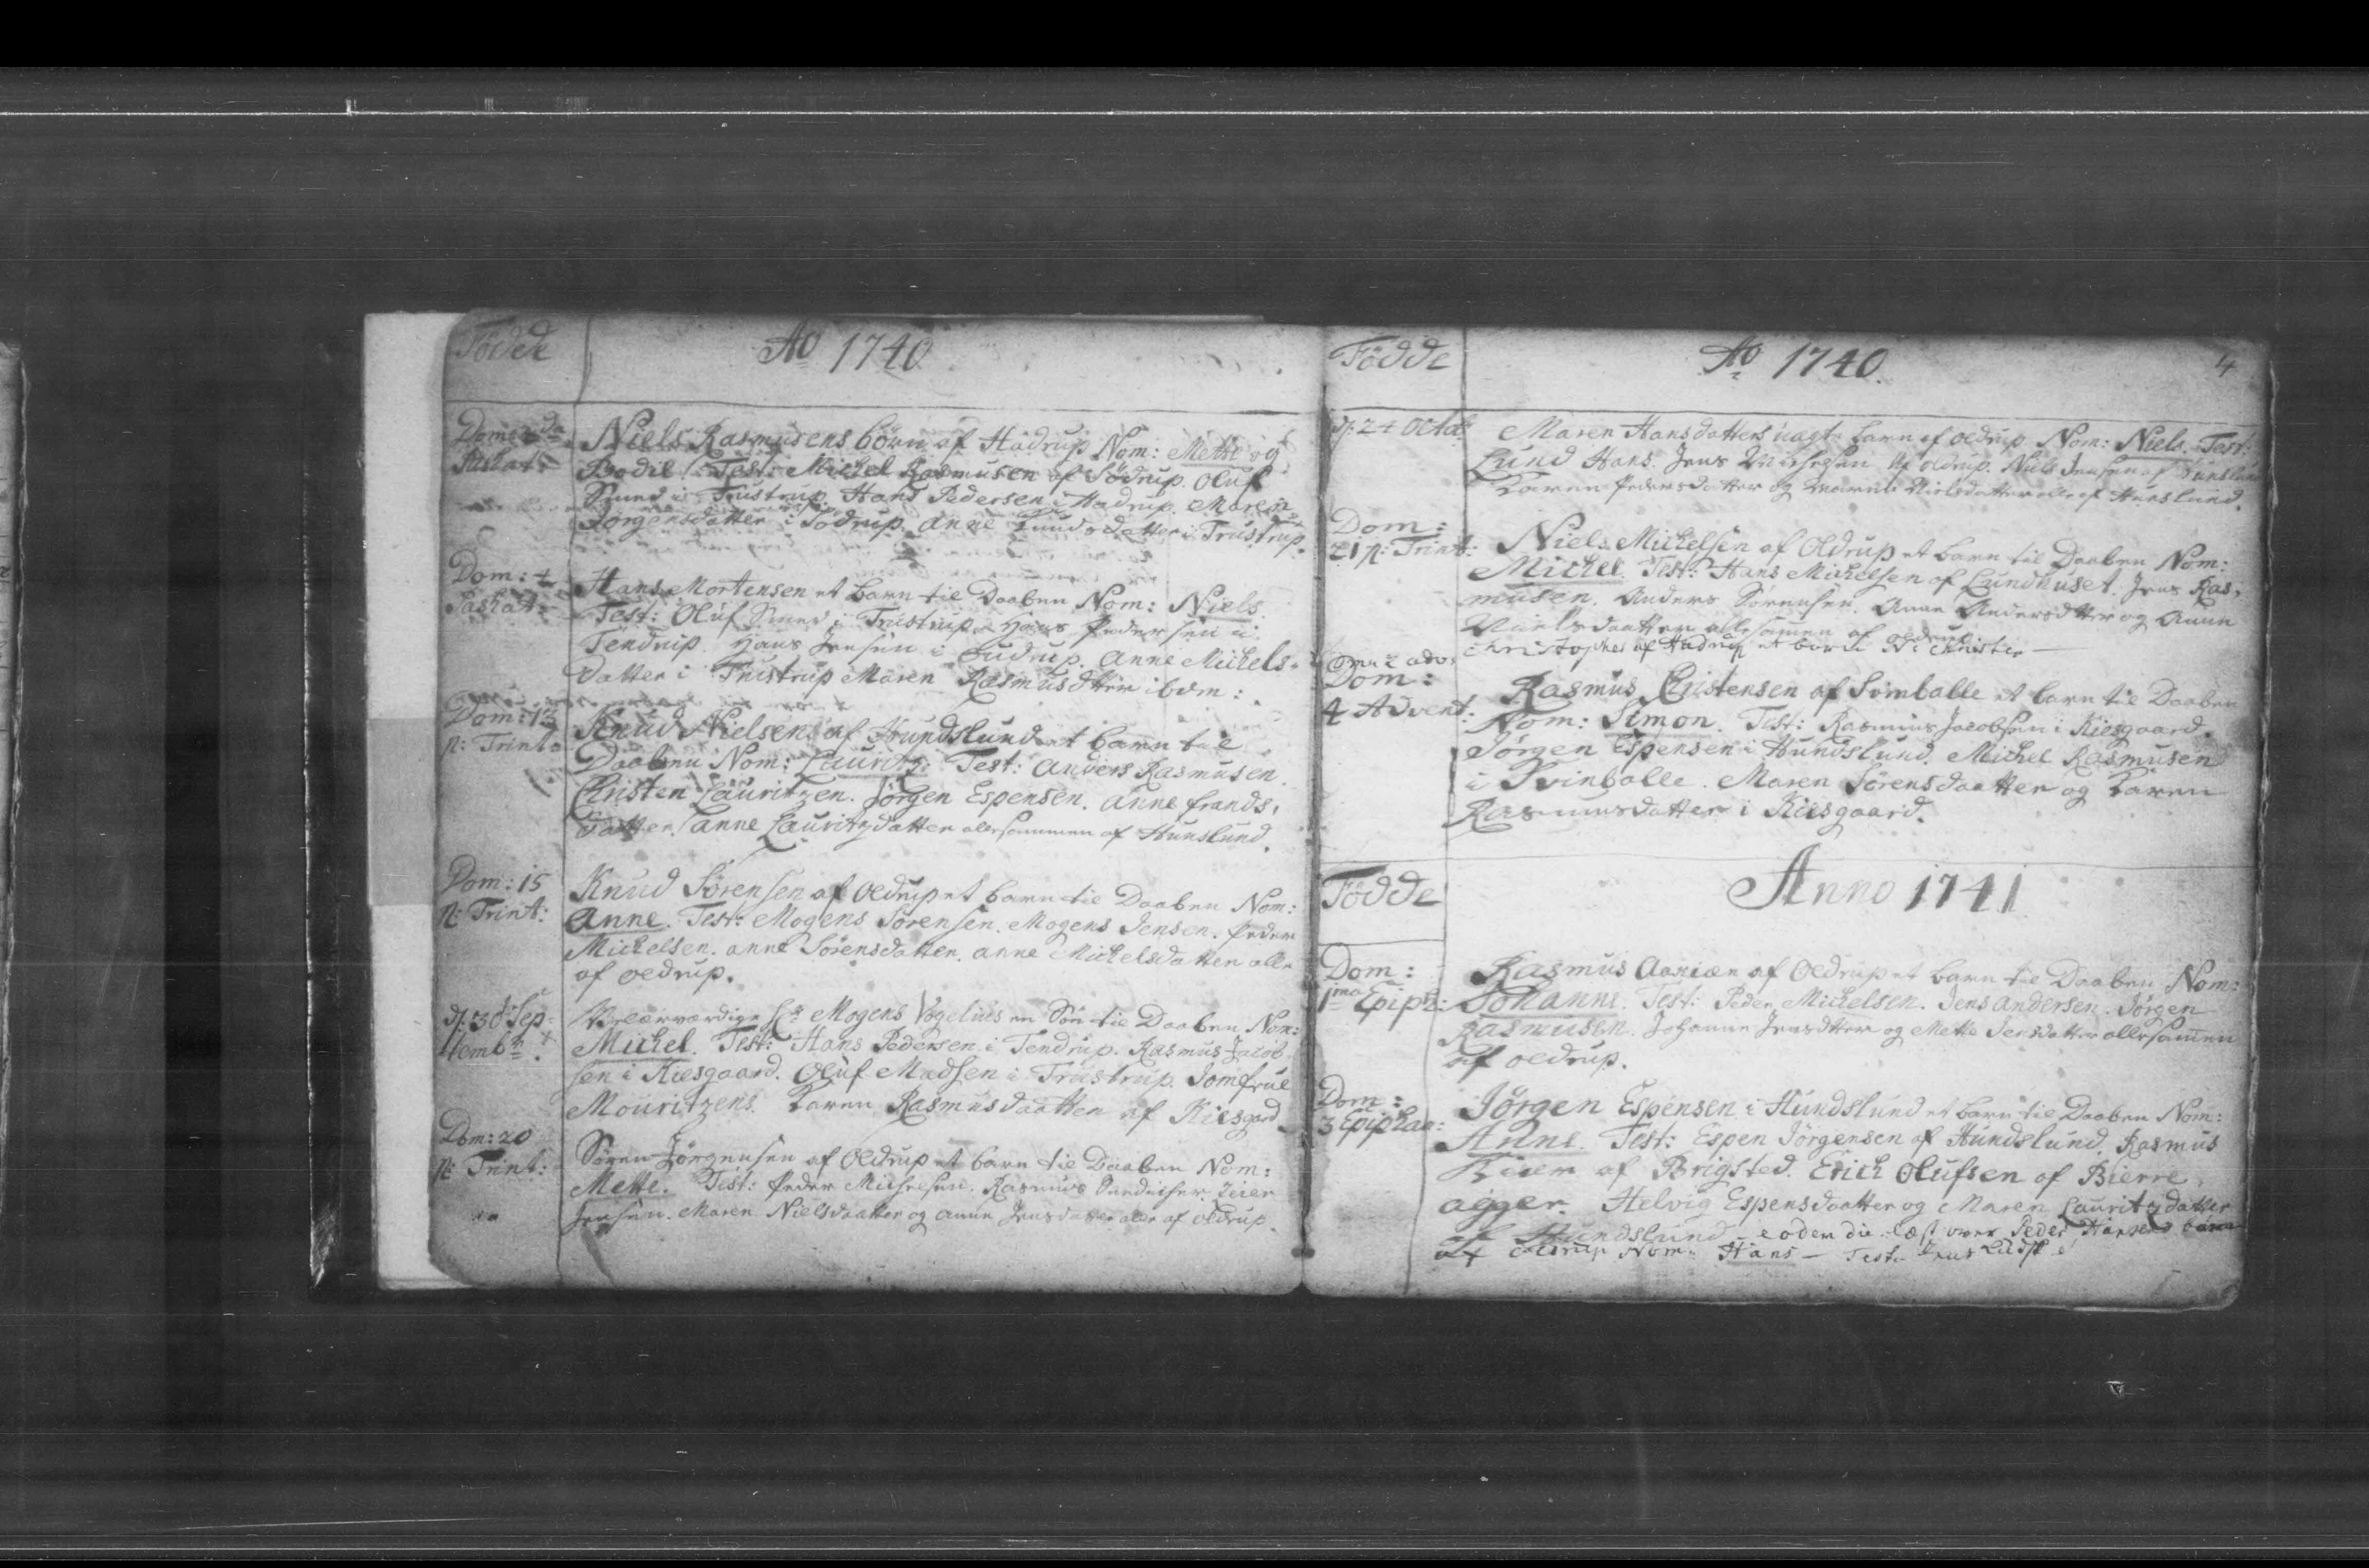 Födde
Ao 1740
Dom: 2da
Paskat:
Niels Rasmusens börn af Hadrup Nom: Mette og
Bodil. Test: Michel Rasmusen af Södrup. Oluf
Smed i Trustrup. Hans Pedersen i Hadrup. Maren
Jörgensdatter i Södrup. Anne Knudsdatter i Trustrup.
Dom: 4
Paskat:
Hans Mortensen et barn til Daaben Nom: Niels.
Test: Oluf Smed i Trustrup. Hans Pedersen i
Tendrup. Hans Jensen i Gudrup. Anne Michels-
datter i Trustrup Maren Rasmusdtter ibdm:
Dom: 13
p: Trinit:
Knud Nielsens af Hundslund et barn til
Daaben Nom: Lauritz: Test: Anders Rasmusen
Christen Lauritzen. Jörgen Espensen. Anne Frands-
datter. Anne Lauritzdatter allesammen af Hunslund.
Dom: 15
p: Trinit:
Knud Sörensen af Oldrup et barn til Daaben Nom:
Anne. Test: Mogens Sörensen. Mogens Jensen. Peder
Michelsen. Anne Sörensdatter. Anne Michelsdatter alle
af Oldrup.
d: 30 Sep-
tembr:
Velærværdige Hr Mogens Vogelius en Sön til Daaben Nom:
Michel. Test: Hans Pedersen i Tendrup. Rasmus Jacob-
sen i Kiesgaard. Oluf Madsen i Trustrup. Jomfrue
Mouritzens. Karen Rasmusdaatter af Kiesgard.
Dom: 20
p: Trinit:
Sören Jörgensen af Oldrup et barn til Daaben Nom:
Mette. Test: Peder Michelsen. Rasmus
Jensen. Maren Nielsdaatter og Anne Jensdatter alle af Oldrup.
Födde
Ao 1740.
4
d: 24 Octob:
Maren Hansdatters uægt: barn af Oldrup Nom: Niels. Test:
Lund Hans. Jens Michelsen af Oldrup. Niels Jensen af Hunslund
Karen Pedersdatter og Maren Nielsdatter alle af Hunslund.
Dom:
21 p: Trinit:
Niels Michelsen af Oldrup et barn til Daaben Nom:
Michel. Test: Hans Michelsen af Lundhuset. Jens Ras-
musen. Anders Sörensen. Anne Andersdtter og Anne
Nielsdaatter allesamen af Oldrup
Dom 2 adv:
Christopher af Hadrup et barn N: Christen
Dom:
4 Advent:
Rasmus Christensen af Svinballe et barn til Daaben
Nom: Simon. Test: Rasmus Jacobsen i Kiesgaard.
Jörgen Espensen i Hundslund. Michel Rasmusen
i Svinballe. Maren Sörensdaatter og Karen
Rasmusdatter i Kiesgaard.
Födde
Anno 1741
Dom:
1ma Epiph:
Rasmus Aariæn af Oldrup et barn til Daaben Nom:
Johanne. Test: Peder Michelsen. Jens Andersen. Jörgen
Rasmusen. Johanne Jensdtter og Mette Jensdatter allesamen
af Oldrup.
Dom:
3 Epiphan:
Jörgen Espensen i Hundslund et barn til Daaben Nom:
Anne. Test: Espen Jörgensen af Hundslund. Rasmus
Kier af Brigsted. Erich Olufsen af Bierre-
agger. Helvig Espensdaatter og Maren Lauritzdatter
af Hundslund. eodem die læst over Peder Hansens barn
af Oldrup Nom: Hans - Test: Jens